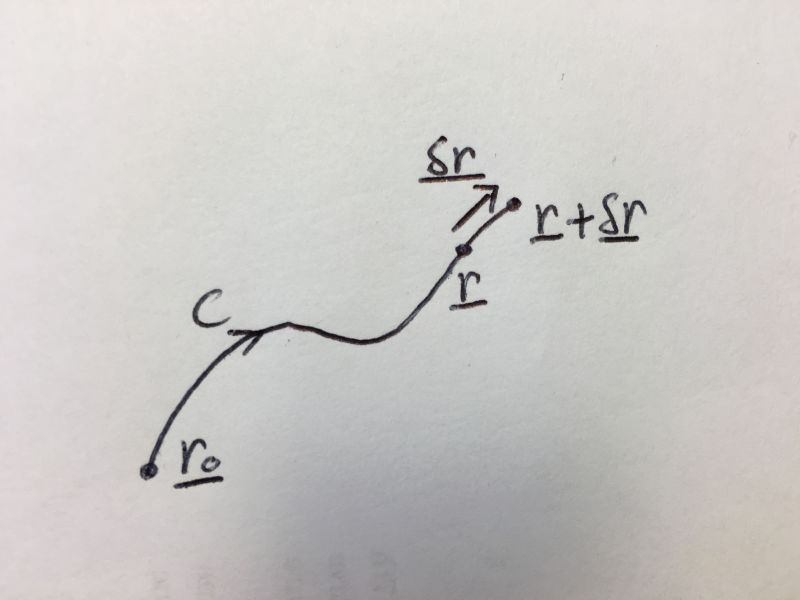 δr
r+δr
r
C
r₀